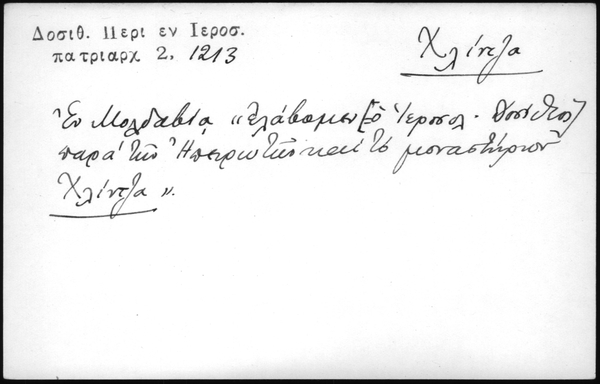 Δοσιθ. Περι εν Ιεροσ.
πατριαρχ 2, 1213
Χλίντζα
Ἐν Μολδαβίᾳ "Ἐλάβομεν [ὁ Ἱεροσολ. Δοσίθεος]
παρὰ τῆς καὶ τὸ μοναστήριον
Χλίντζα".